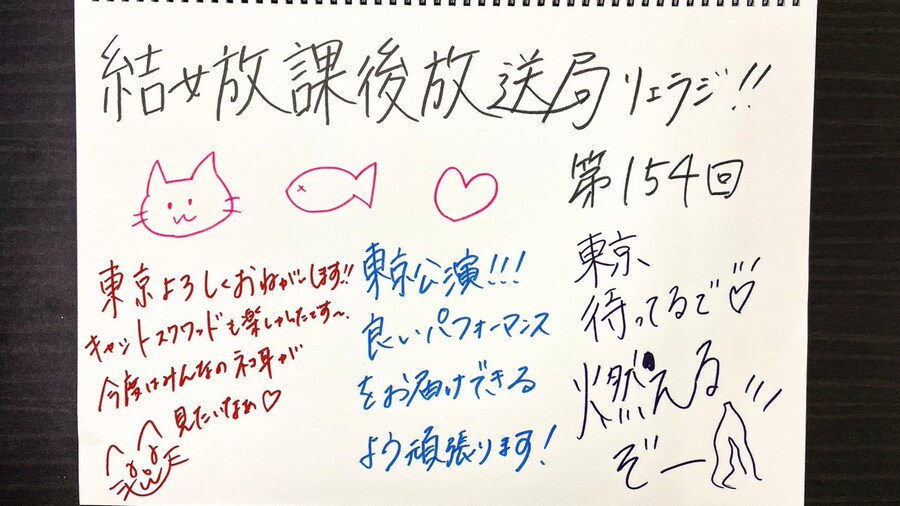 結女放課後放送局リエラジ!!
第154回
東京よろしくおねがいします!!
キャットスクワッドも楽しかったです〜
今度はみんなのネコ耳が
見たいなぁ♡
東京公演!!!
良いパフォーマンス
をお届けできる
よう頑張ります!
東京
待ってるで♡
燃える
ぞー